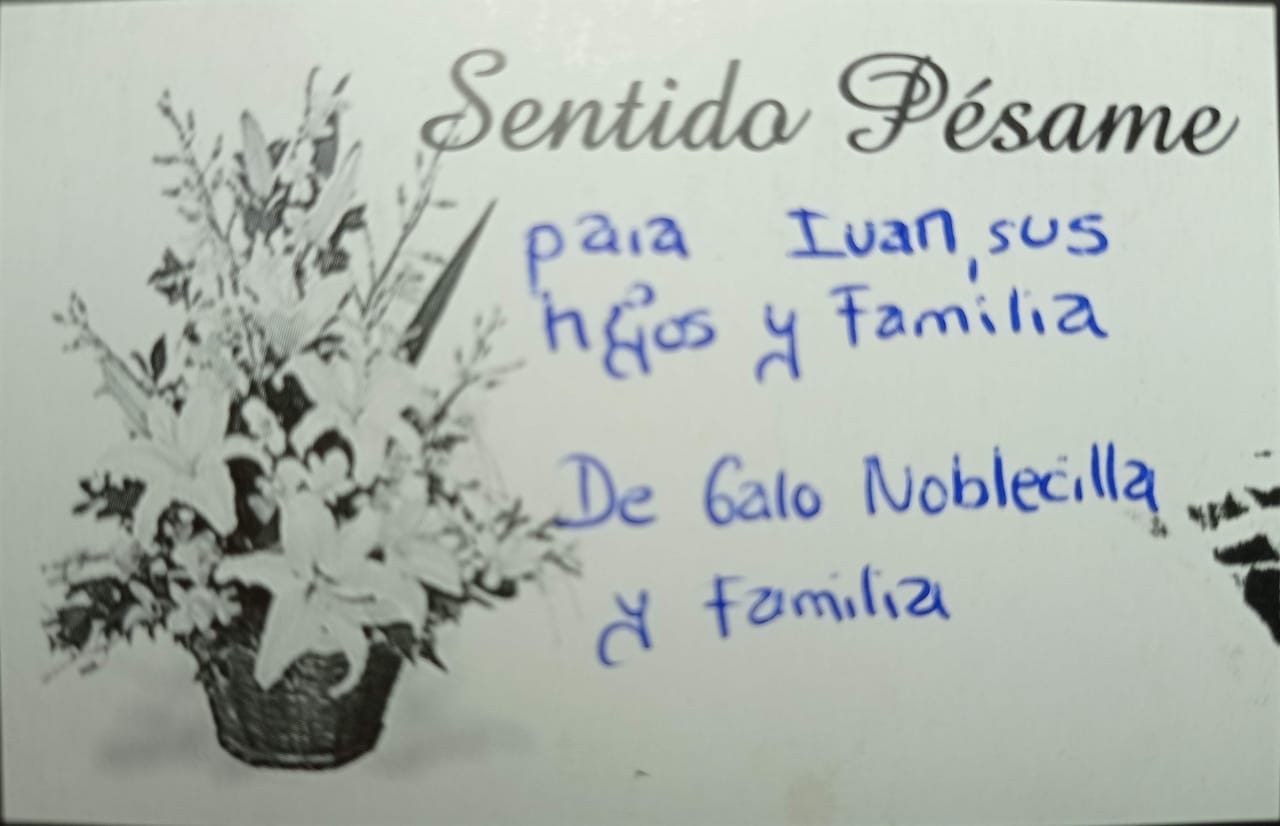 Sentido Pésame
para Ivan, sus
hijos y Familia
De Galo Noblecilla
y familia